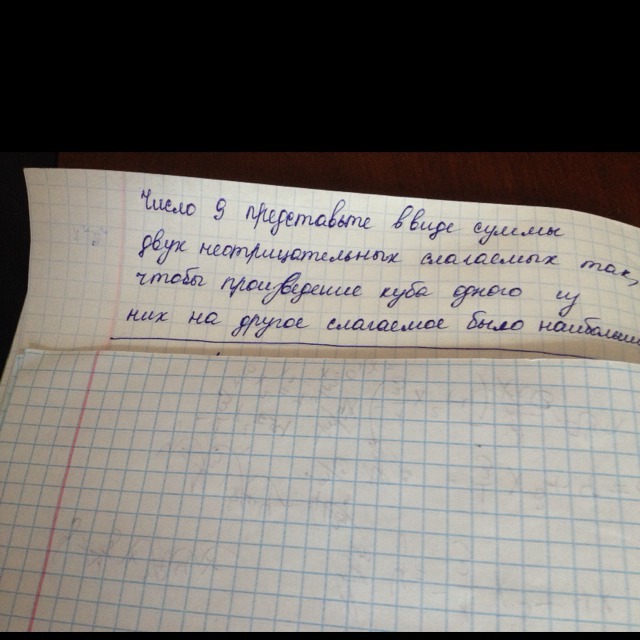 Число 9 представьте ввиде суммы
двух неотрицательных слагаемых так,
чтобы произведение куба одного из
них на другое слагаемое было